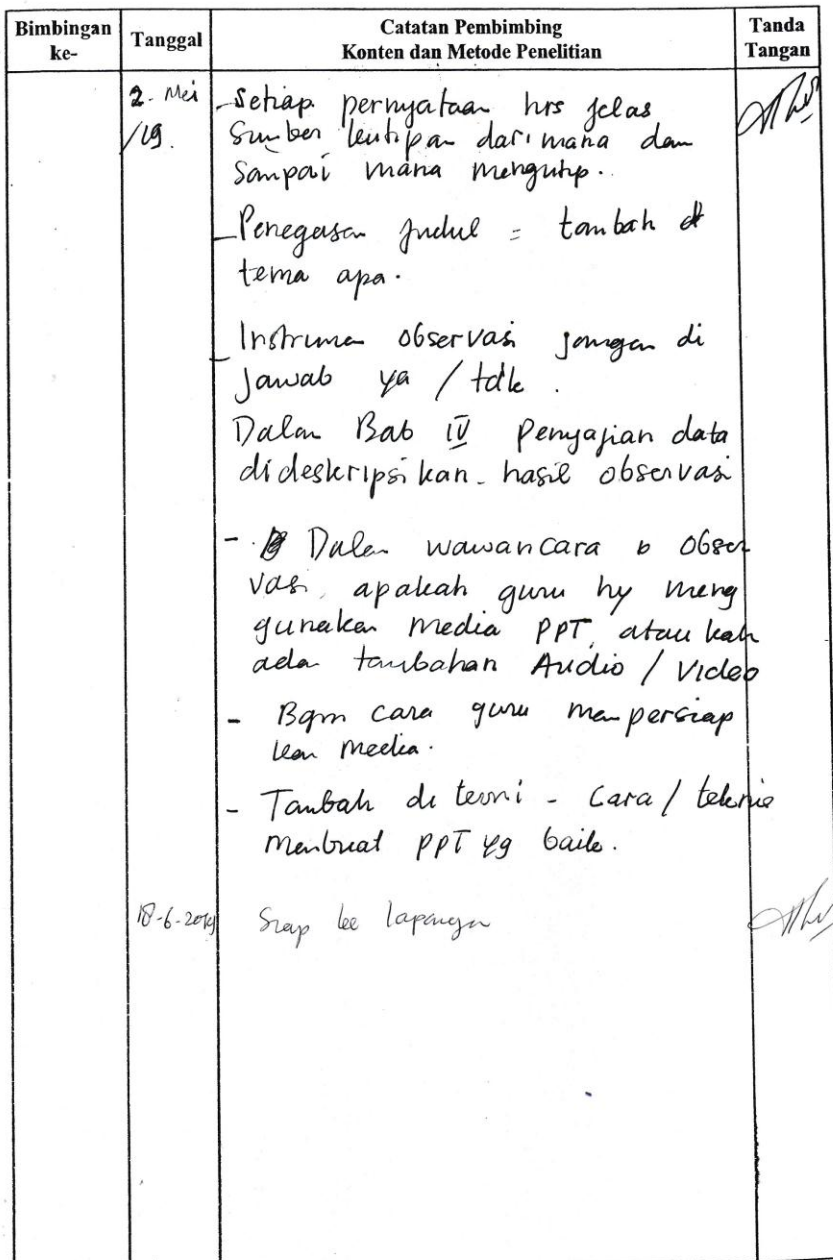 Bimbingan ke-
Tanggal
Catatan Pembimbing
Konten dan Metode Penelitian
Tanda Tangan
2. Mei /19.
- Setiap pernyataan hrs jelas
Sumber kutipan dari mana dan
Sampai mana mengutip.
- Penegasan judul = tambah
tema apa.
- Instrumen observasi jangan di
jawab ya / tdk.
Dalam Bab IV penyajian data
dideskripsikan - hasil observasi
- Dalam wawancara & obser
vasi, apakah guru hy meng
gunakan media PPT, ataukah
ada tambahan Audio / Video
- Bgm cara guru mempersiap
kan media.
- Tambah di teori - Cara / teknis
Membuat PPT yg baik.
18-6-2019
Siap ke lapangan